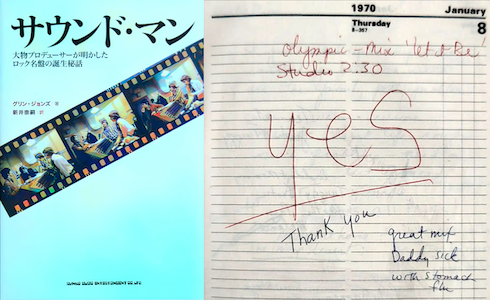 サウンド・マン
大物プロデューサーが明かした
ロック名盤の誕生秘話
グリン・ジョンズ 著
新井崇嗣 訳
1970 January
Thursday 8
8-357
Olympic - Mix 'Let it Be'
Studio 2:30
yes
Thank you
great mix
Daddy sick
with stomach
flu